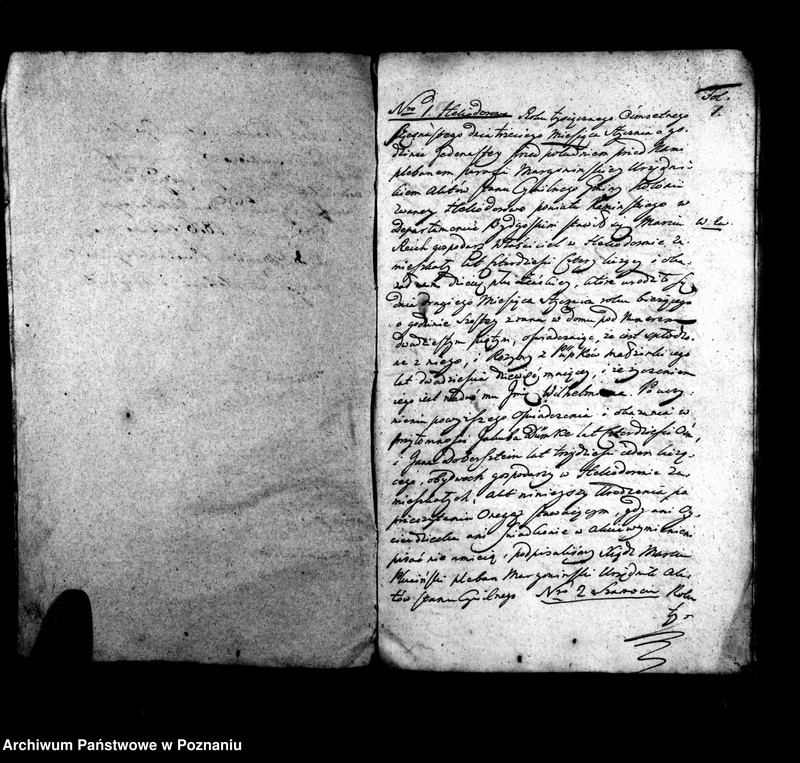 Fol.
1.
Nro 1 Heliodorowo Roku tysiącznego Ośmsetnego
dnia trzeciego Miesiąca Stycznia o go-
dzinie Jedenastey przed południem przed Nami
plebanem parafii Margoninskiey Urzędni-
kiem Aktów Stanu Cywilnego Gminy
zwaney Heliodorowo powiatu Kaminskiego w
Departamencie Bydgoskim stawił się Marcin
Reich gospodarz właściciel w Heliodorowie za-
mieszkały lat czterdzieści cztery liczący i oka-
zał nam dziecię płci żeńskiey, które urodziło się
dnia drugiego Miesiąca Stycznia roku bieżącego
o godzinie szostey zrana w domu pod Numerem
dwudziestym piątym, oświadczaiąc, że iest spłodzo-
ne z niego, i Rozyny z małżonki iego
lat dwadzieścia maiącey, i że życzeniem
iego iest nadać mu Jmię Wilhelmina. Po uczy-
nieniu powyższego oświadczenia i okazania w
przytomności Jakuba Dümke lat czterdzieści
i Jana Doberstein lat trzydzieści ieden liczą-
cego, obydwoch gospodarzy w Heliodorowie za-
mieszkałych. Akt ninieyszy Urodzenia, po
przeczytaniu Onego stawaiącym, gdy ani Oy-
ciec dziecka ani Świadkowie w Akcie wymienieni
pisać nie umieią, podpisaliśmy Xiądz Marcin
pleban Margoninski Urzędnik Ak-
tów Stanu Cywilnego Nro 2 Roku
ty-
Archiwum Państwowe w Poznaniu